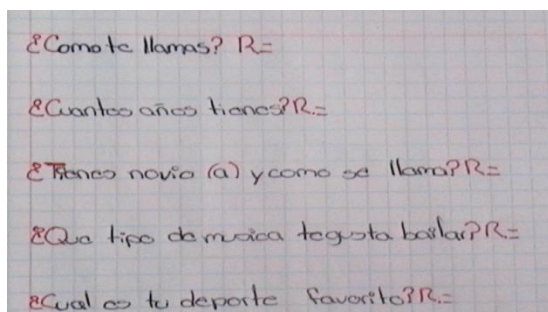 ¿Como te llamas? R=
¿Cuantos años tienes? R=
¿Tienes novio (a) y como se llama? R=
¿Que tipo de musica te gusta bailar? R=
¿Cual es tu deporte favorito? R=